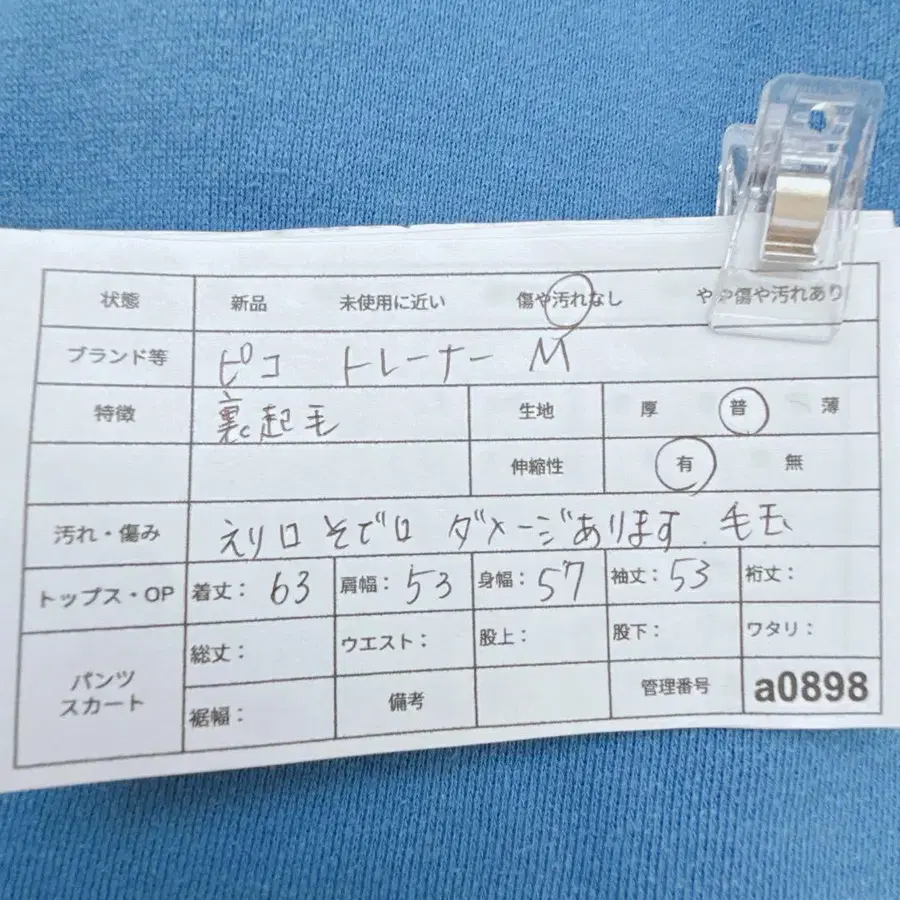 状態 新品 未使用に近い 傷や汚れなし やや傷や汚れあり
ブランド等 ピコ トレーナー M
特徴 裏起毛 生地 厚 普 薄
伸縮性 有 無
汚れ・傷み えり口 そで口 ダメージあります. 毛玉
トップス・OP 着丈: 63 肩幅: 53 身幅: 57 袖丈: 53 裄丈:
パンツ スカート 総丈: ウエスト: 股上: 股下: ワタリ:
裾幅: 備考 管理番号 a0898